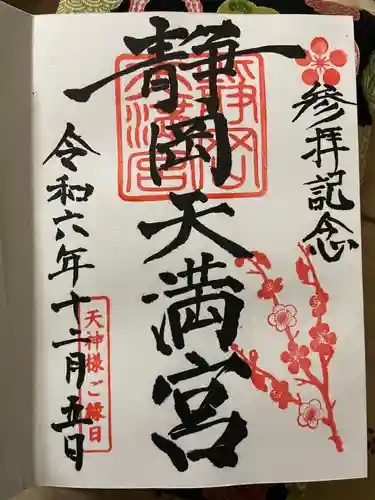 参拝記念
静岡天満宮
静岡天満宮
天神様ご縁日
令和六年十二月五日